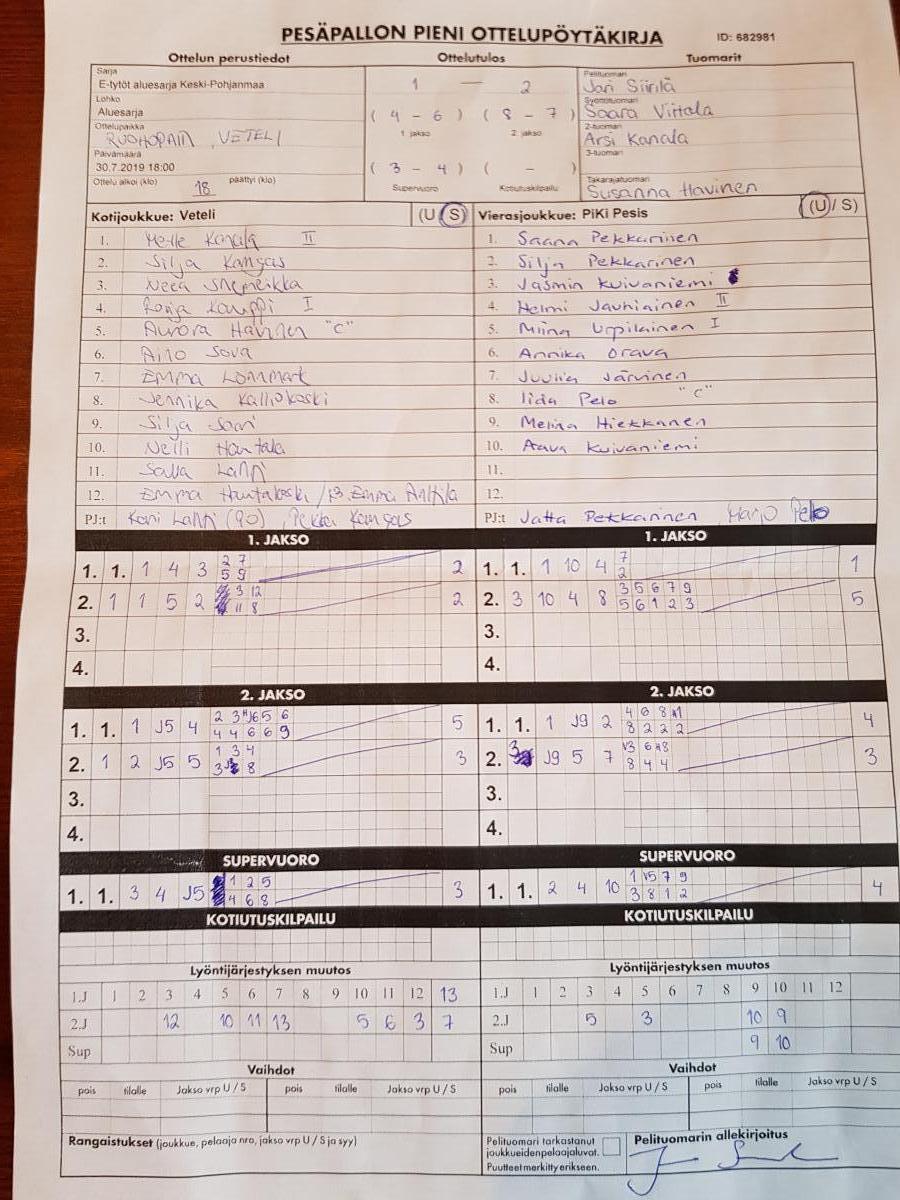 PESÄPALLON PIENI OTTELUPÖYTÄKIRJA ID: 682981
Ottelun perustiedot Ottelutulos Tuomarit
Sarja
E-tytöt aluesarja Keski-Pohjanmaa
Lohko
Aluesarja
Ottelupaikka
RUOHOPAIN, VETELI
Päivämäärä
30.7.2019 18:00
Ottelu alkoi (klo) 18 päättyi (klo)
1 — 2
( 4 - 6 ) ( 8 - 7 )
1 jakso 2 jakso
( 3 - 4 ) ( - )
Supervuoro Kotiutuskilpailu
Pelituomari
Jari Siirilä
Syöttötuomari
Saara Virtala
2-tuomari
Arsi Kanala
3-tuomari
Takarajatuomari
Susanna Havinen
Kotijoukkue: Veteli (U / S)
1. Kanala II
2. Silja Kangas
3. Neea
4. Ronja Kauppi I
5. Aurora "C"
6. Aino Sova
7. Emma Lönnmark
8. Jennika Kalliokoski
9. Silja
10. Nelli Hantala
11. Salla
12. Emma /13 Emma Anttila
PJ:t (90), Pekka Kangas
Vierasjoukkue: PiKi Pesis (U / S)
1. Saana Pekkarinen
2. Silja Pekkarinen
3. Jasmin Kuivaniemi
4. Helmi Jauhiainen II
5. Miina Urpilainen I
6. Annika Orava
7. Juulia Järvinen
8. Iida Pelo "C"
9. Melina Hiekkanen
10. Aava Kuivaniemi
11.
12.
PJ:t Jatta Pekkarinen, Marjo Pelo
1. JAKSO 1. JAKSO
1. 1. 1 4 3 2 7 2
5 9
2. 1 1 5 2 3 12 2
11 8
3.
4.
1. 1. 1 10 4 7 1
2
2. 3 10 4 8 3 5 6 7 9 5
5 6 1 2 3
3.
4.
2. JAKSO 2. JAKSO
1. 1. 1 J5 4 5
4 4 6 6 9
2. 1 2 J5 5 1 3 4 3
3 8
3.
4.
1. 1. 1 J9 2 4 6 8 4
8 2 2 2
2. 3 J9 5 7 3
8 4 4
3.
4.
SUPERVUORO SUPERVUORO
1. 1. 3 4 J5 1 2 5 3
4 6 8
1. 1. 2 4 10 4
3 8 1 2
KOTIUTUSKILPAILU KOTIUTUSKILPAILU
Lyöntijärjestyksen muutos
1.J 1 2 3 4 5 6 7 8 9 10 11 12 13
2.J 12 10 11 13 5 6 3 7
Sup
Lyöntijärjestyksen muutos
1.J 1 2 3 4 5 6 7 8 9 10 11 12
2.J 5 3 10 9
Sup 9 10
Vaihdot Vaihdot
pois tilalle Jakso vrp U / S pois tilalle Jakso vrp U / S
pois tilalle Jakso vrp U / S pois tilalle Jakso vrp U / S
Rangaistukset (joukkue, pelaaja nro, jakso vrp U / S ja syy)
Pelituomari tarkastanut
joukkueidenpelaajaluvat.
Puutteet merkitty erikseen.
Pelituomarin allekirjoitus